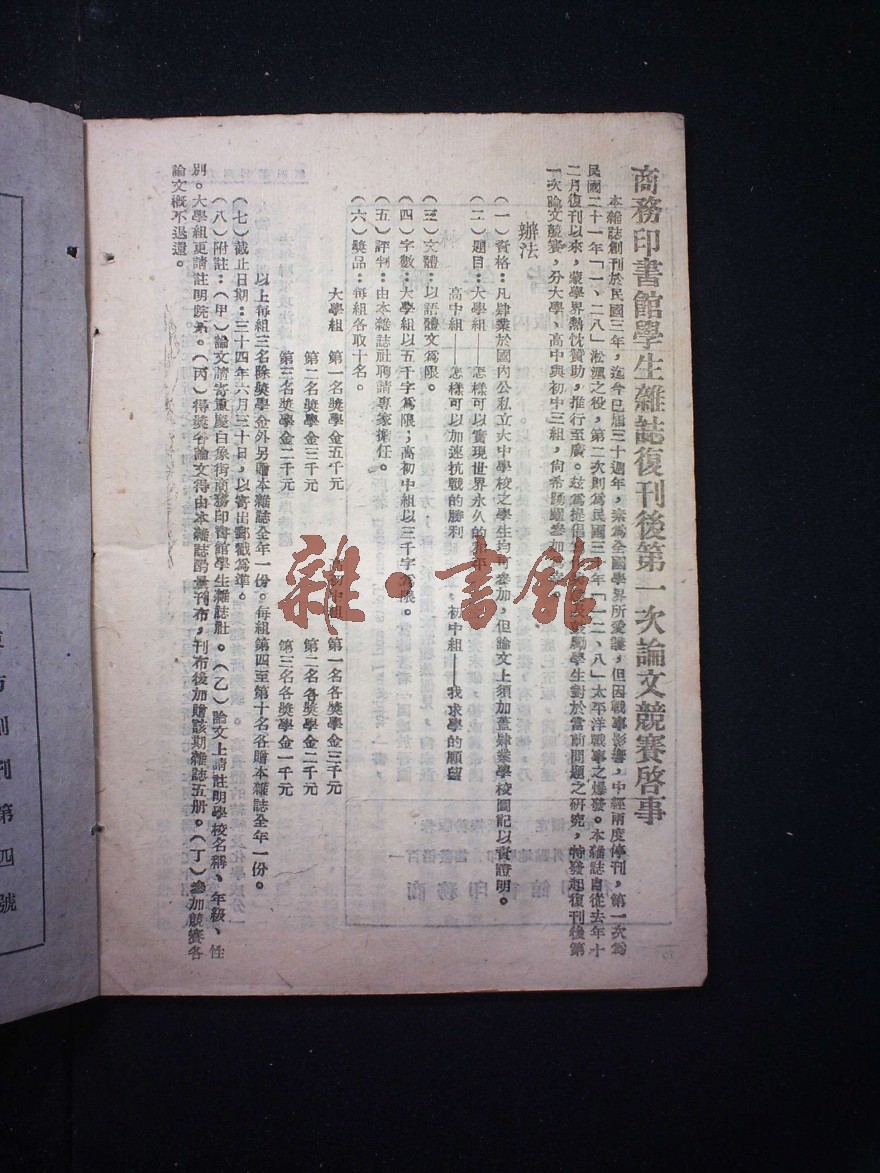 商務印書館學生雜誌復刊後第一次論文競賽啓事
本雜誌創刊於民國三年，迄今已屆三十週年，素為全國學界所愛護，但因戰事影響，中經兩度停刊，第一次為
民國二十一年「一、二八」淞滬之役，第二次則為民國三十年「一二、八」太平洋戰事之爆發。本雜誌自從去年十
二月復刊以來，蒙學界熱忱贊助，推行至廣。茲為提倡
及鼓勵學生對於當前問題之研究，特發起復刊後第
一次論文競賽，分大學、高中與初中三組，尚希踴躍參加
辦法
（一）資格：凡肄業於國內公私立大中學校之學生均可參加，但論文上須加蓋肄業學校圖記以資證明。
（二）題目：大學組——怎樣可以實現世界永久的和平
高中組——怎樣可以加速抗戰的勝利　初中組——我求學的願望
（三）文體：以語體文為限。
（四）字數：大學組以五千字為限；高初中組以三千字為限。
（五）評判：由本雜誌社聘請專家擔任。
（六）獎品：每組各取十名。
大學組　第一名獎學金五千元　高初中組　第一名各獎學金三千元
第二名獎學金三千元　第二名各獎學金二千元
第三名獎學金二千元　第三名各獎學金一千元
以上每組三名除獎學金外另贈本雜誌全年一份。每組第四至第十名各贈本雜誌全年一份。
（七）截止日期：三十四年六月三十日，以寄出郵戳為準。
（八）附註：（甲）論文請寄重慶白象街商務印書館學生雜誌社。（乙）論文上請註明學校名稱、年級、性
別。大學組更請註明院系。（丙）得獎各論文得由本雜誌酌量刊布，刊布後加贈該期雜誌五册。（丁）參加競賽各
論文概不退還。
刊第四號
雜·書館